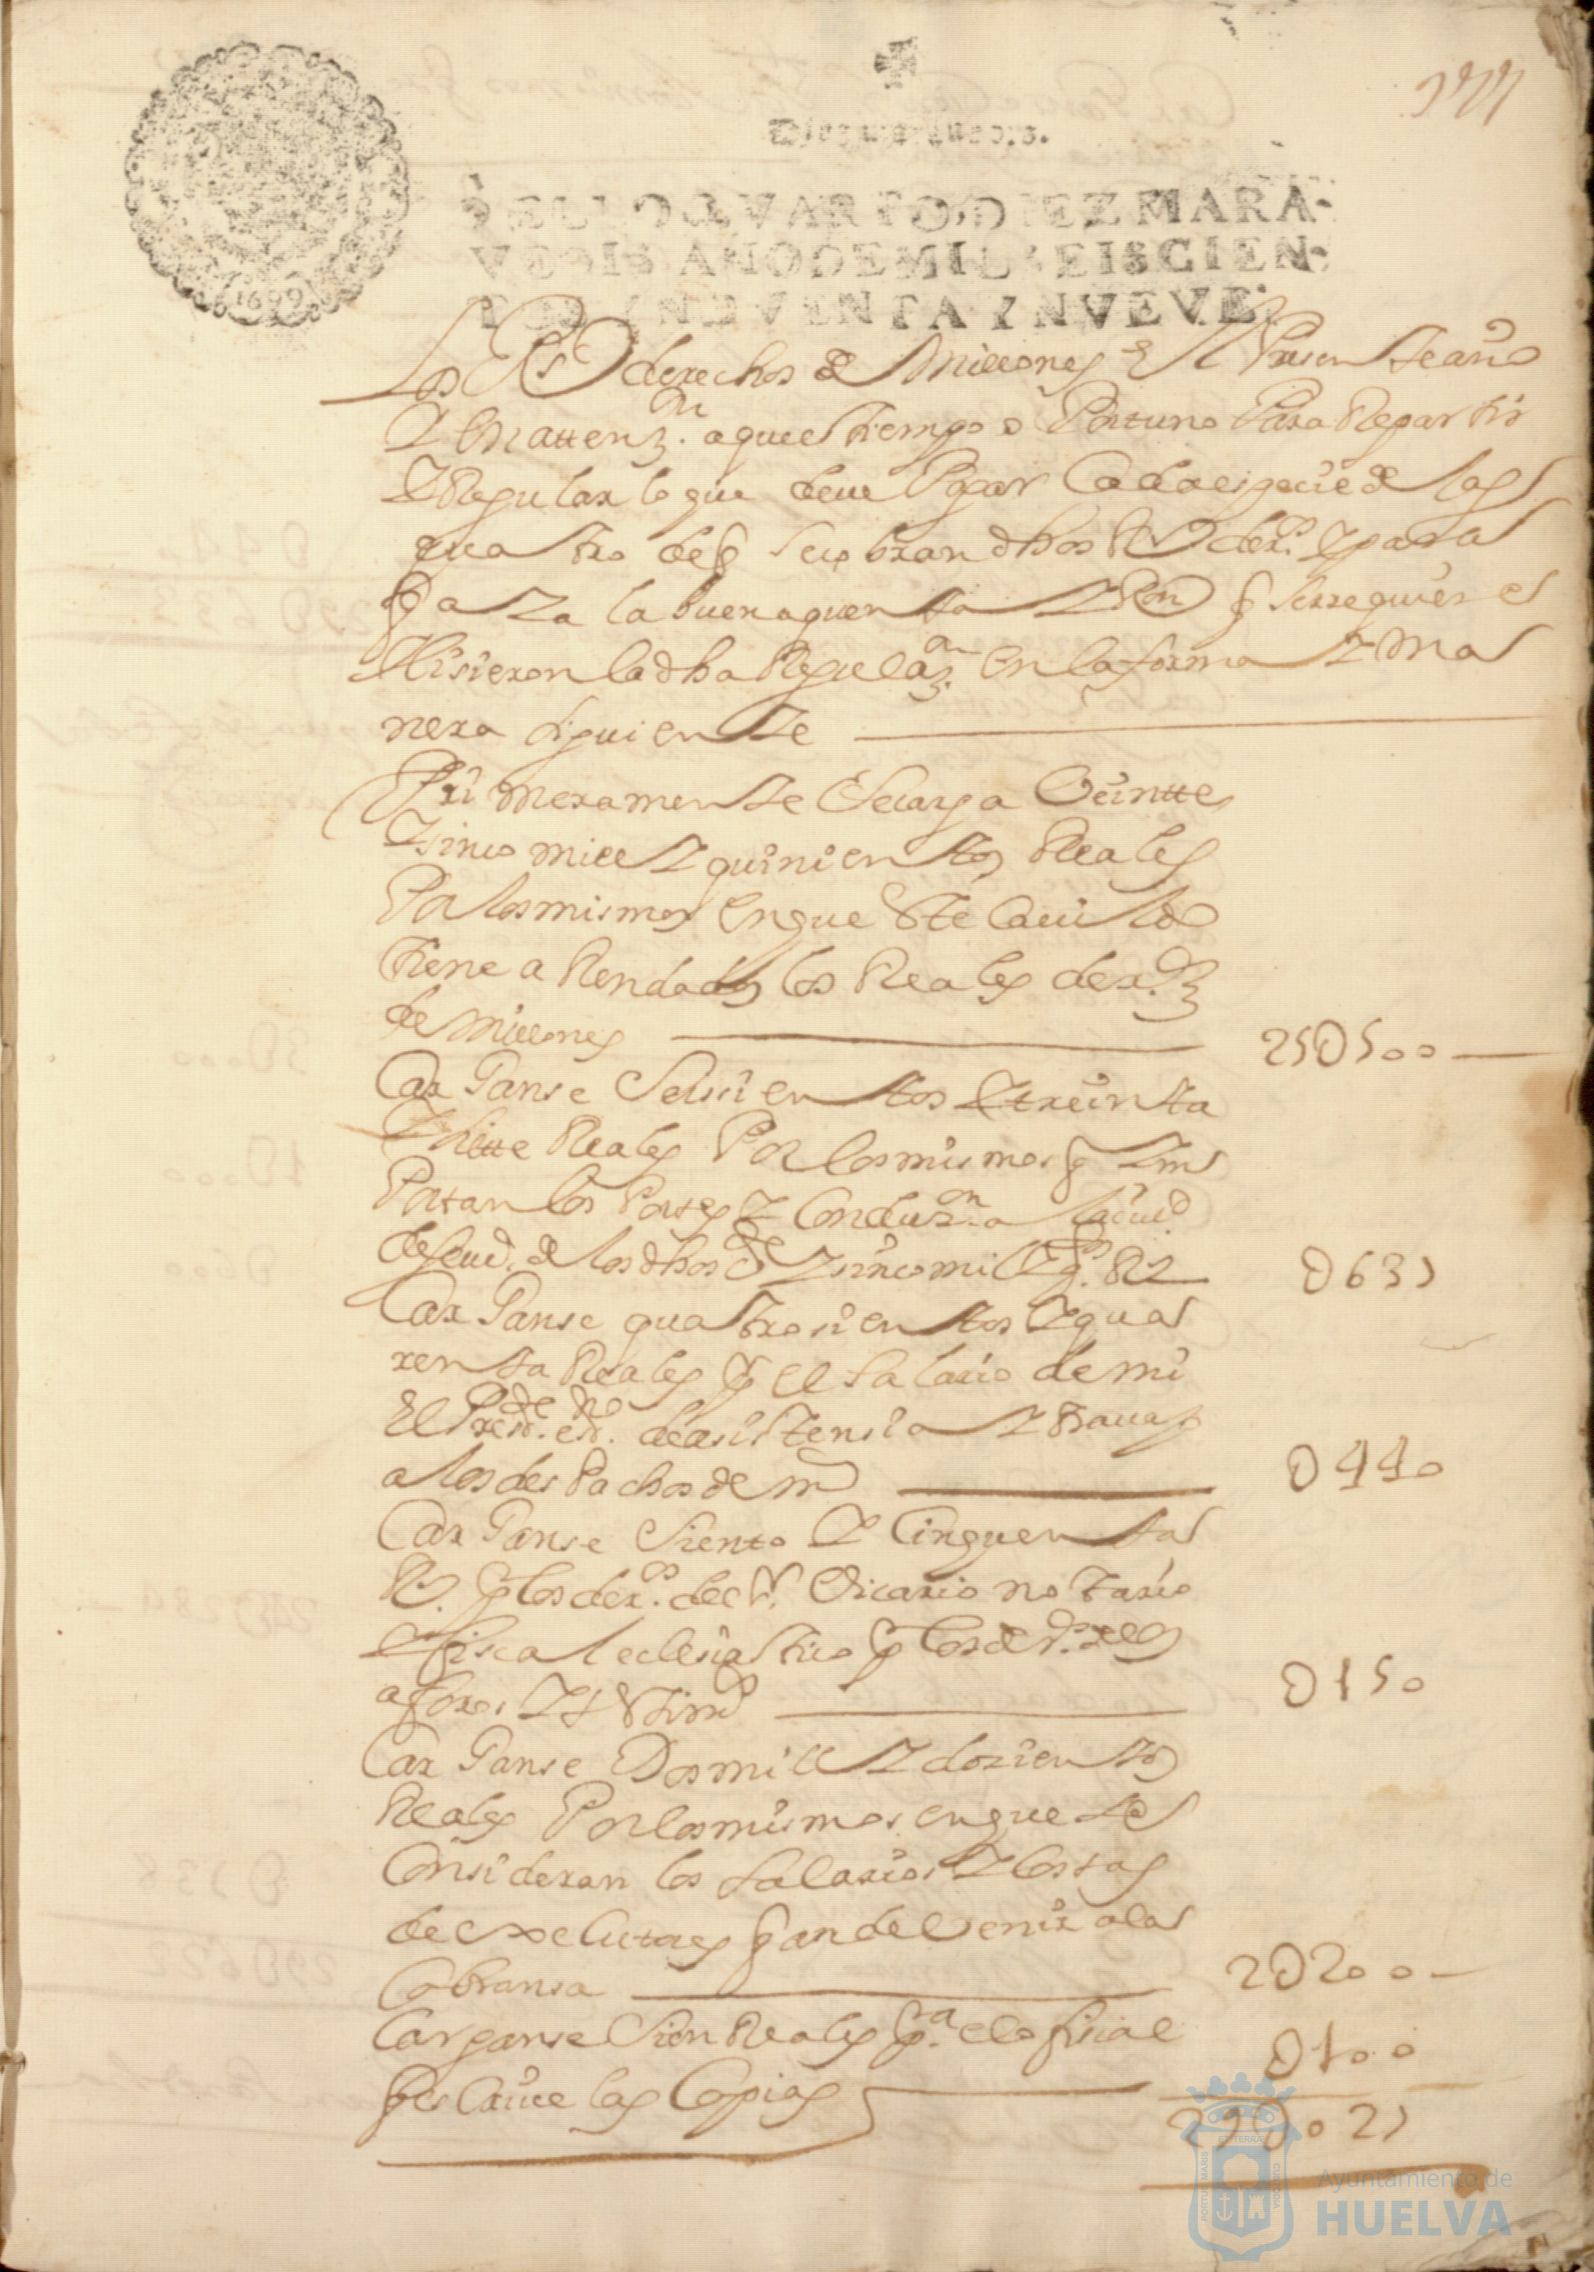 Diez maravedis.
SELLO QVARTO, DIEZ MARA-
VEDIS, AÑO DE MIL SEISCIEN-
TOS Y NOVENTA Y NVEVE.
1699
Los Rs derechos de Millones el Presente año
aquel tiempo oportuno Para Repartir
Y Regular lo que deve Pagar Cada espesie de las
quatro de q se cobran dhos Rs der.os y para
q aya la buena quenta y Ron q se rrequiere
Hisieron la dha Regulaon en la forma y ma
nera siguiente
Primeramente Se carga Veintte
y sinco mill y quinientos Reales
Por los mismos en que Este Cavildo
tiene a Rendados los Reales der.os
de Millones 25U500
Carganse Seissientos y treinta
y siette Reales Por los mismos q Im
Portan los Portes y Conduzon a la Ciud
de Sevd. de los dhos y sinco mill y qos Rs U637
Carganse quatrosientos y qua
renta Reales por el salario de mi
El Presde esno de asistensia y travajo
a los despachos de m U440
Carganse Siento y Cinquenta
Rs. por los der.os del Sr. Vicario notario
y fiscal eclesiastico por los de
aforos y U150
Carganse Dos mill y dozientos
Reales Por los mismos en que se
Consideran los salarios y costas
de executores q an de venir a la
Cobransa 2U200
Carganse Sien Reales pa. el ofisial
q escrive las Copias U100
29U027
Ayuntamiento de
HUELVA